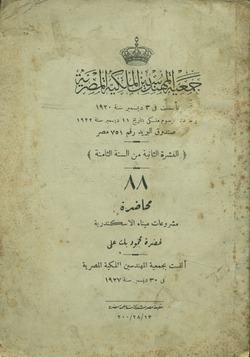 جمعية المهندسين الملكية المصرية
تأسست فى ٣ ديسمبر سنة ١٩٢٠
مرسوم ملكى بتاريخ ١١ ديسمبر سنة ١٩٢٢
صندوق البريد رقم ٧٥١ مصر
﴿ النشرة الثانية من السنة الثامنة ﴾
٨٨
محاضرة
مشروعات ميناء الاسكندرية
لحضرة محمود بك على
ألقيت بجمعية المهندسين الملكية المصرية
فى ٣٠ ديسمبر سنة ١٩٢٧
٢٠٠/٢٨/١٣